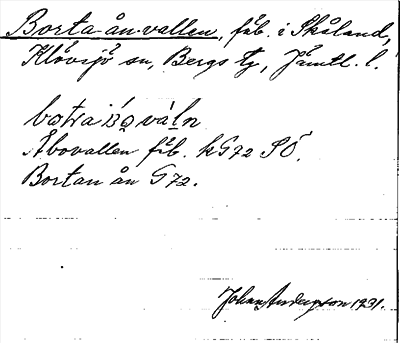 Borta-ån-vallen, fäb. i Skåland,
Klövsjö sn, Bergs tg, Jämtl. l.
Åbovallen fäb. kG72 SÖ.
Bortan ån G72.
Johan Andersson 1931.